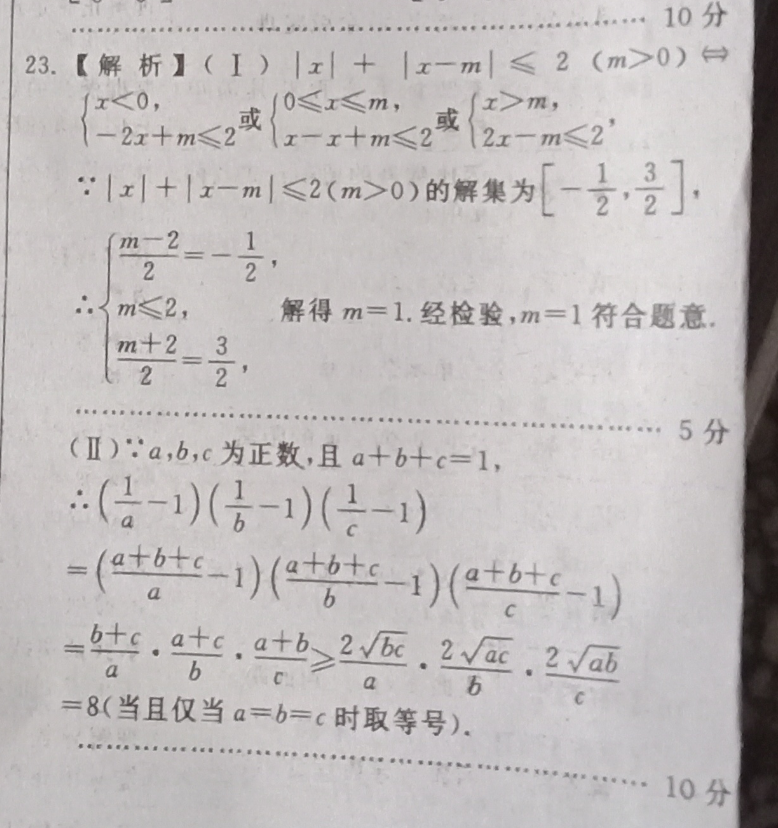 10 分
23.【解 析】( Ⅰ ) |x| + |x-m| ≤ 2 (m>0) ⇔
{x<0, -2x+m≤2 或 {0≤x≤m, x-x+m≤2 或 {x>m, 2x-m≤2,
∵|x|+|x-m|≤2(m>0)的解集为[-1/2, 3/2],
∴{(m-2)/2=-1/2, m≤2, (m+2)/2=3/2, 解得 m=1. 经检验,m=1 符合题意.
5 分
(Ⅱ)∵a,b,c 为正数,且 a+b+c=1,
∴(1/a-1)(1/b-1)(1/c-1)
=((a+b+c)/a-1)((a+b+c)/b-1)((a+b+c)/c-1)
=(b+c)/a·(a+c)/b·(a+b)/c≥2√bc/a·2√ac/b·2√ab/c
=8(当且仅当 a=b=c 时取等号).
10 分